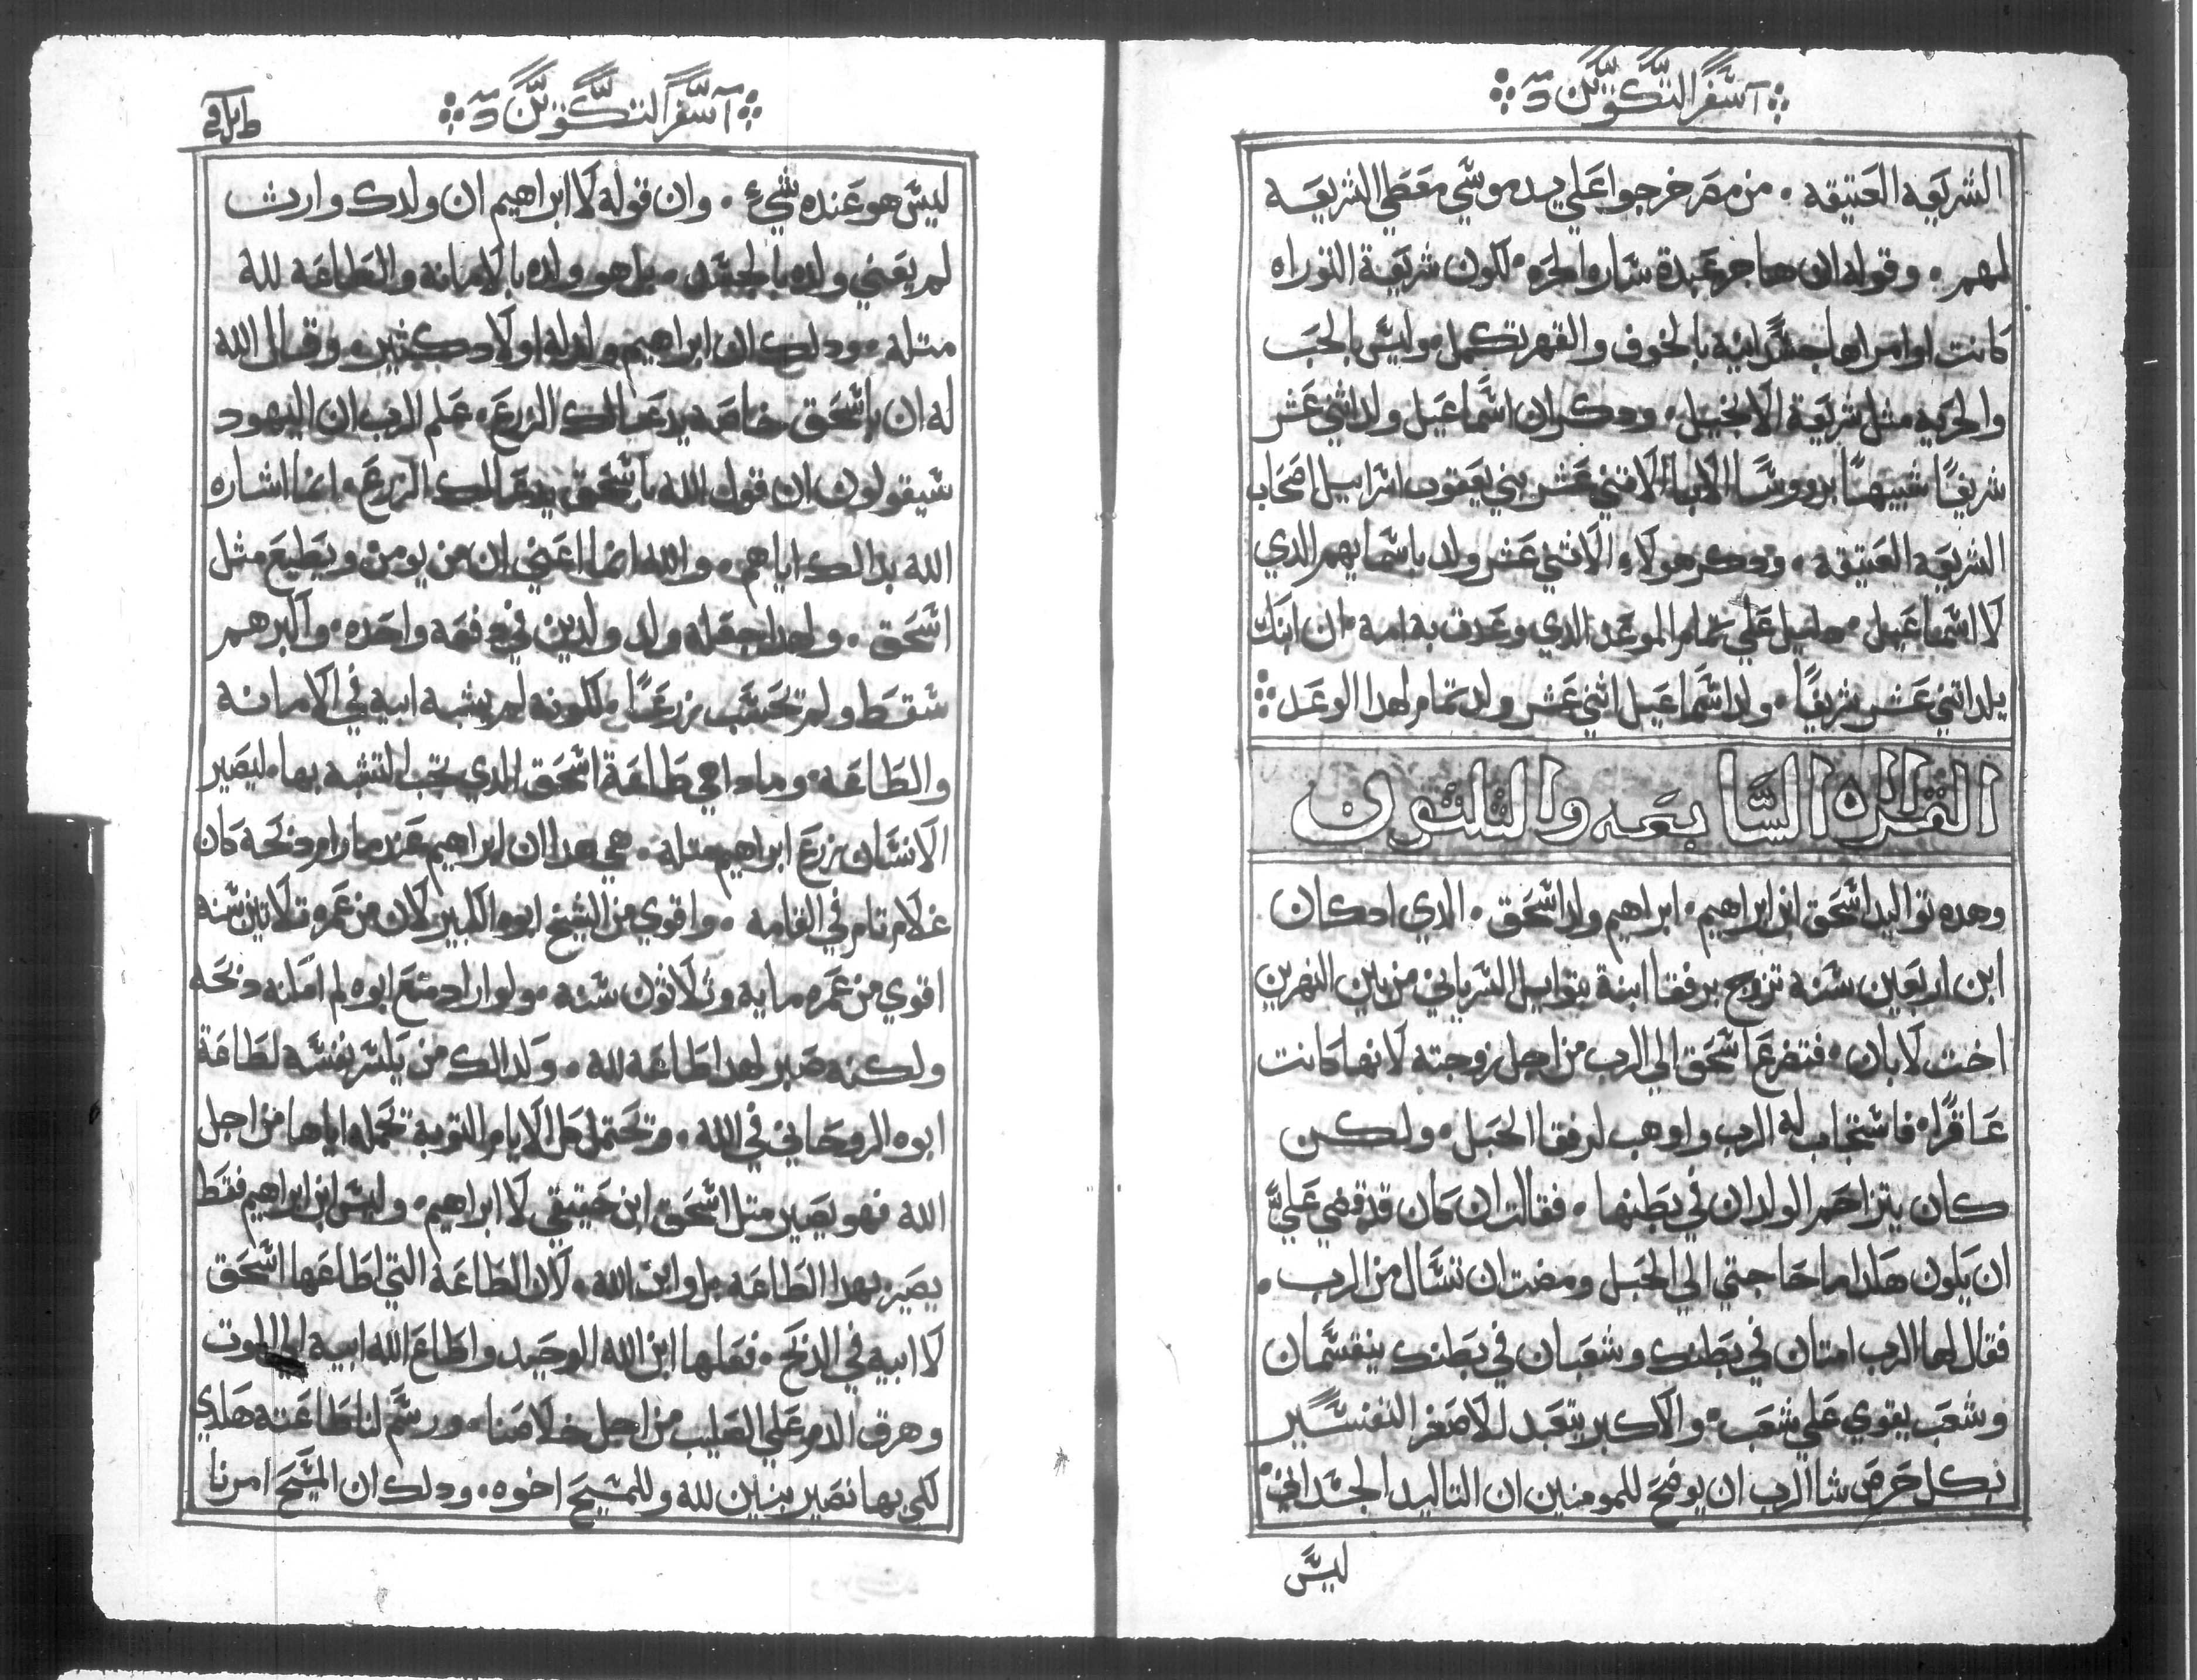 سفر التكوين
الشريعه العتيقه . من مصر خرجوا علي يد موسي معطي الشريعه
لهم . وقوله ان هاجر عبدة ساره الحره . لكون شريعة التوراه
كانت اوامراها جسدانيه بالخوف والقهر تكمل . وليس بالحب
والحريه مثل شريعة الانجيل . ودكر ان اسماعيل ولد اثني عشر
شريفًا شبيهًا بروسا الابا الاثني عشر بني يعقوب اسراييل اصحاب
الشريعه العتيقه . ودكر هولاء الاثني عشر ولد باسمايهم الدي
لاسماعيل . دليل علي تمام الموعد الدي وعدت به امه . ان ابنك
يلد اتني عشر شريفًا . ولد اسماعيل اثني عشر ولد تمام لهدا الوعد
القراه السابعه والثلثون
وهده تواليد اسحق ابن ابراهيم . ابراهيم ولد اسحق . الدي ادكان
ابن اربعين سنه تزوج برفقا ابنة بتوايل السرياني من بين النهرين
اخت لابان . فتضرع اسحق الي الرب من اجل زوجته لانها كانت
عاقرًا . فاستجاب له الرب واوهب لرفقا الحبل . ولكن
كان يتزاحم الولدان في بطنها . فقالت ان كان قد قضي علي
ان يكون هكدا ما حاجتي الي الحبل ومضت ان تسال من الرب .
فقال لها الرب امتان في بطنك وشعبان في بطنك ينقسمان
وشعب يقوي علي شعب . والاكبر يتعبد للاصغر التفسير
بكل حرص شا الرب ان يوضح للمومنين ان التاليد الجسداني
ليس
سفر التكوين
ليس هو عنده شيء . وان قوله لابراهيم ان ولدك وارث
لم يعني ولده بالجسد . بل هو ولده بالامانه والطاعه لله
متله . ودلك ان ابراهيم ولد له اولاد كثيره . وقال الله
له ان باسحق خاصه يدعا لك الزرع . علم الرب ان اليهود
سيقولون ان قول الله باسحق يدعا لك الزرع . انما اشاره
الله بدالك اياهم . والله انما اعني ان من يومن ويطيع مثل
اسحق . ولهدا جعله ولد ولدين في دفعه واحده . واكبرهم
سقط ولم تحسب زرعًا . لكونه لم يشبه ابيه في الامانه
والطاعه . وما دا هي طاعة اسحق الدي يجب التشبه بها . ليصير
الانسان زرع ابراهيم متله . هي هدا ان ابراهيم عندما رام دبحه كان
غلام تام في القامه . واقوي من الشيخ ابوه الكبير لان من عمره تلاتين سنه
اقوي من عمره مايه وثلاثون سنه . ولو اراد منع ابوه لم امكنه دبحه
ولكنه صبر لهدا طاعه لله . وكدالك من يكسر نفسه لطاعة
ابوه الروحاني في الله . وتحتمل كل الايام التوبه تحمله اياها من اجل
الله فهو يصير متل اسحق ابن حقيقي لابراهيم . وليس ابن ابراهيم فقط
يصير بهدا الطاعه . بل وابن الله . لان الطاعة التي اطاعها اسحق
لابيه في الدبح . فعلها ابن الله الوحيد واطاع الله ابيه الي الموت
وهرق الدم علي الصليب من اجل خلاصنا . ورسم لنا طاعته هكدي
لكي بها نصير بنين لله وللمسيح اخوه . ودلك ان المسيح امرنا